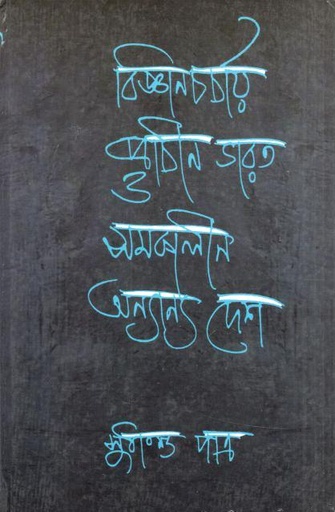 বিজ্ঞানচর্চায়
প্রাচীন ভারত
ও
সমকালীন
অন্যান্য দেশ
পাত্র